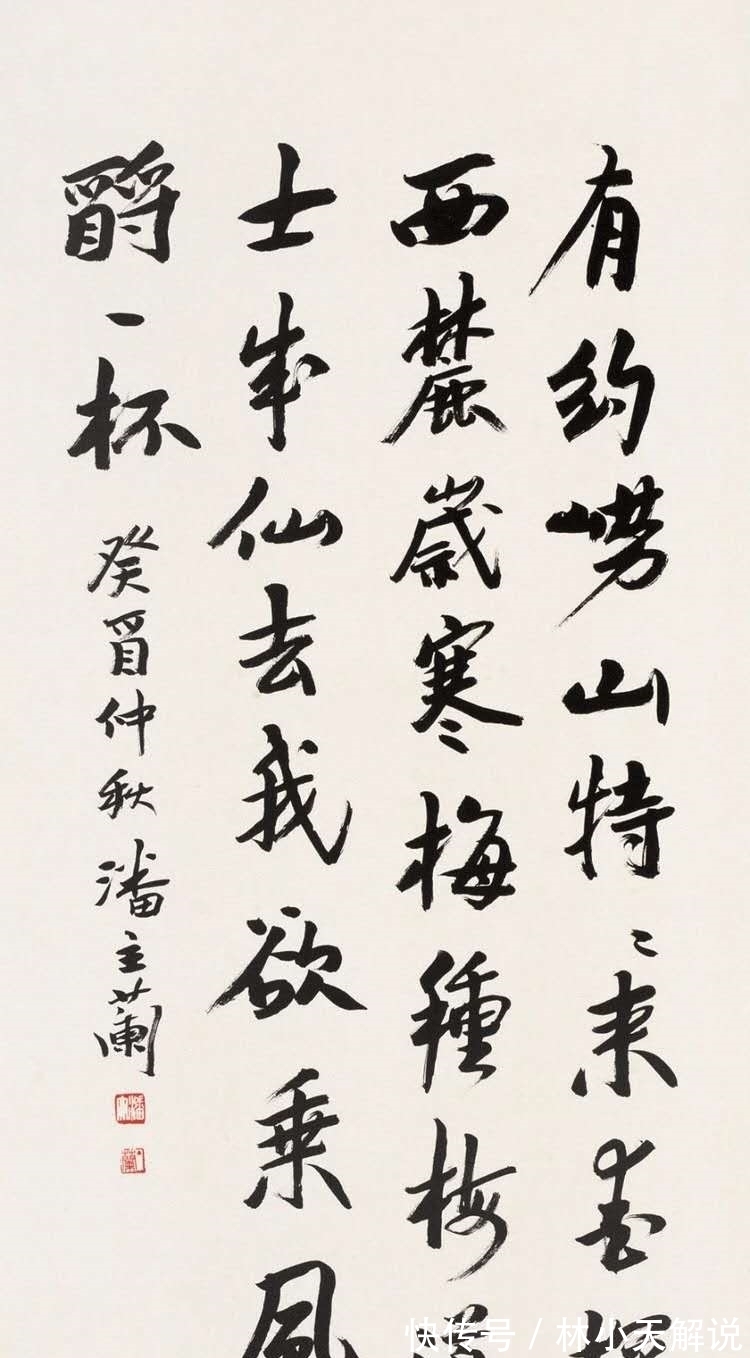 有約嶗山特〻来
西麓歲寒梅種梅
士成仙去我欲乘風
爵一杯
癸酉仲秋潘主蘭
快传号 / 林小天解说